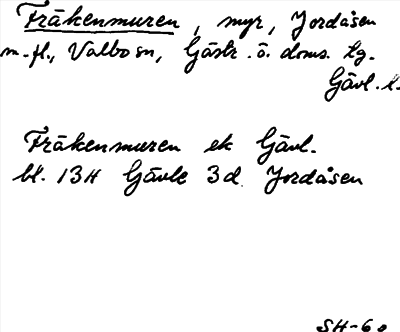 Fräkenmuren, myr, Jordåsen
m.fl., Valbo sn, Gästr. ö. doms. tg.
Gävl. l.
Fräkenmuren ek Gävl.
bl. 13H Gävle 3d Jordåsen
SH-60